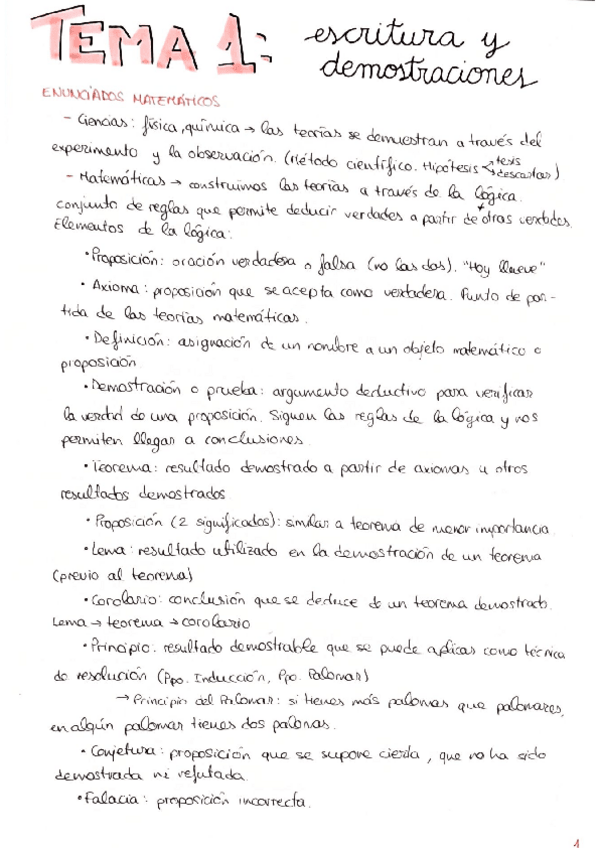 TEMA 1: escritura y
demostraciones
ENUNCIADOS MATEMÁTICOS
- Ciencias: física, química → las teorías se demuestran a través del
experimento y la observación. (Método científico. Hipótesis < tesis
descartar)
- Matemáticas → construimos las teorías a través de la lógica.
conjunto de reglas que permite deducir verdades a partir de otras verdades.
Elementos de la lógica:
• Proposición: oración verdadera o falsa (no las dos). "Hoy llueve"
• Axioma: proposición que se acepta como verdadera. Punto de par-
tida de las teorías matemáticas.
• Definición: asignación de un nombre a un objeto matemático o
proposición.
• Demostración o prueba: argumento deductivo para verificar
la verdad de una proposición. Siguen las reglas de la lógica y nos
permiten llegar a conclusiones.
• Teorema: resultado demostrado a partir de axiomas u otros
resultados demostrados.
• Proposición (2 significados): similar a teorema de menor importancia.
• Lema: resultado utilizado en la demostración de un teorema
(previo al teorema)
• Corolario: conclusión que se deduce de un teorema demostrado.
Lema → teorema → corolario
• Principio: resultado demostrable que se puede aplicar como técnica
de resolución (Ppo. Inducción, Ppo. Palomar)
→ Principio del Palomar: si tienes más palomas que palomares,
en algún palomar tienes dos palomas.
• Conjetura: proposición que se supone cierta, que no ha sido
demostrada ni refutada.
• Falacia: proposición incorrecta.
1